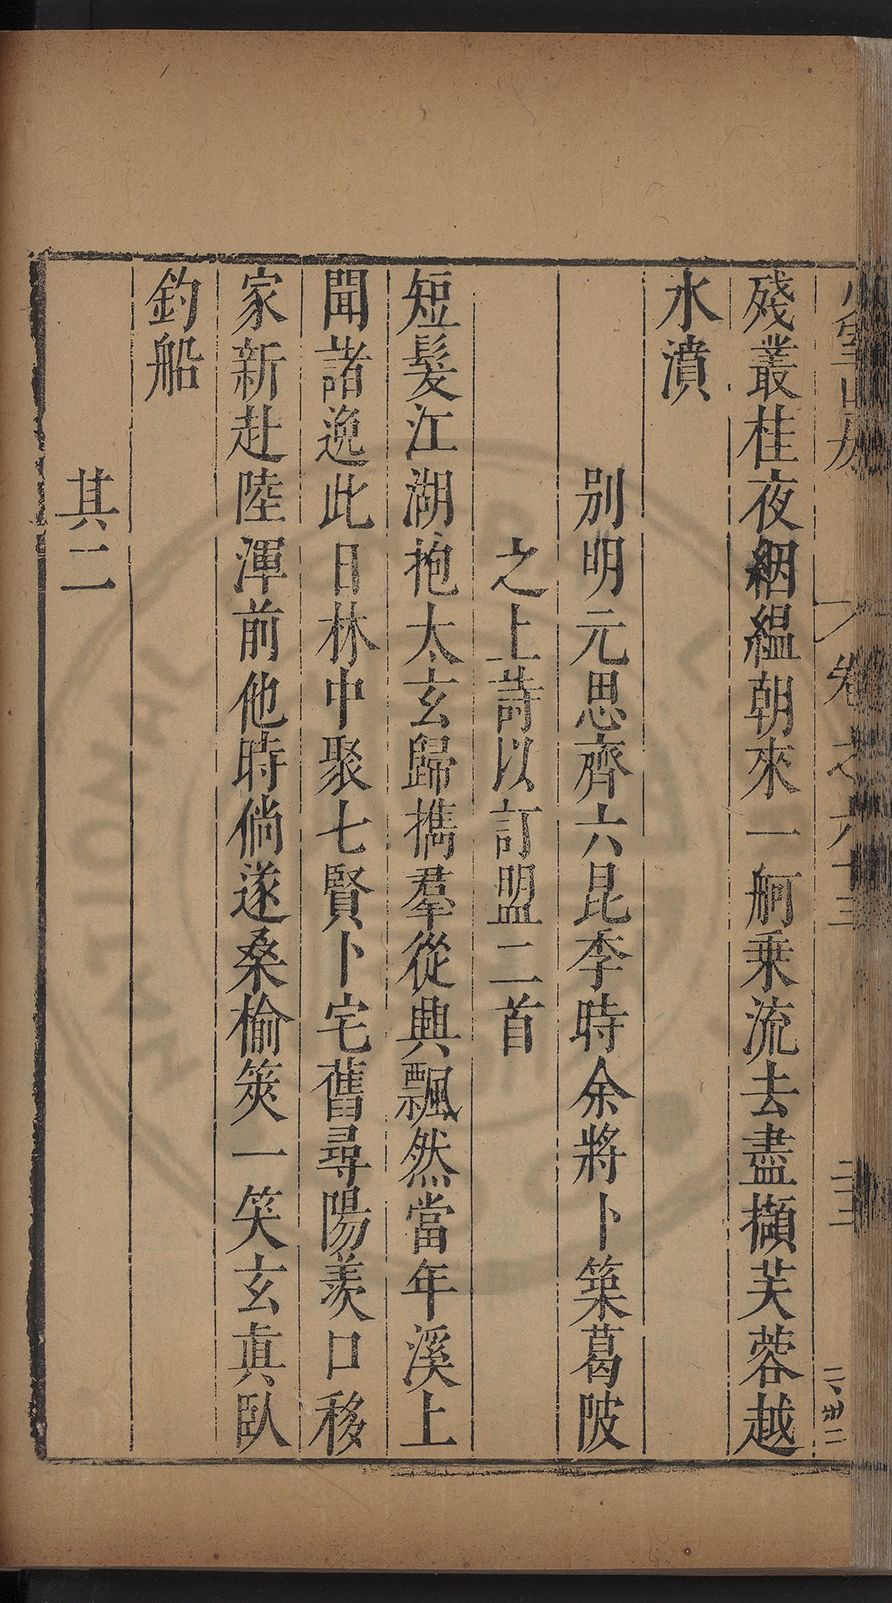 卷之六十三
殘叢桂夜絪縕朝來一舸乘流去盡擷芙蓉越
水濆
別明元思齊六昆季時余將卜築葛陂
之上詩以訂盟二首
短髮江湖抱太玄歸攜羣從興飄然當年溪上
聞諸逸此日林中聚七賢卜宅舊尋陽羨口移
家新赴陸渾前他時倘遂桑榆筴一笑玄真臥
釣船
其二